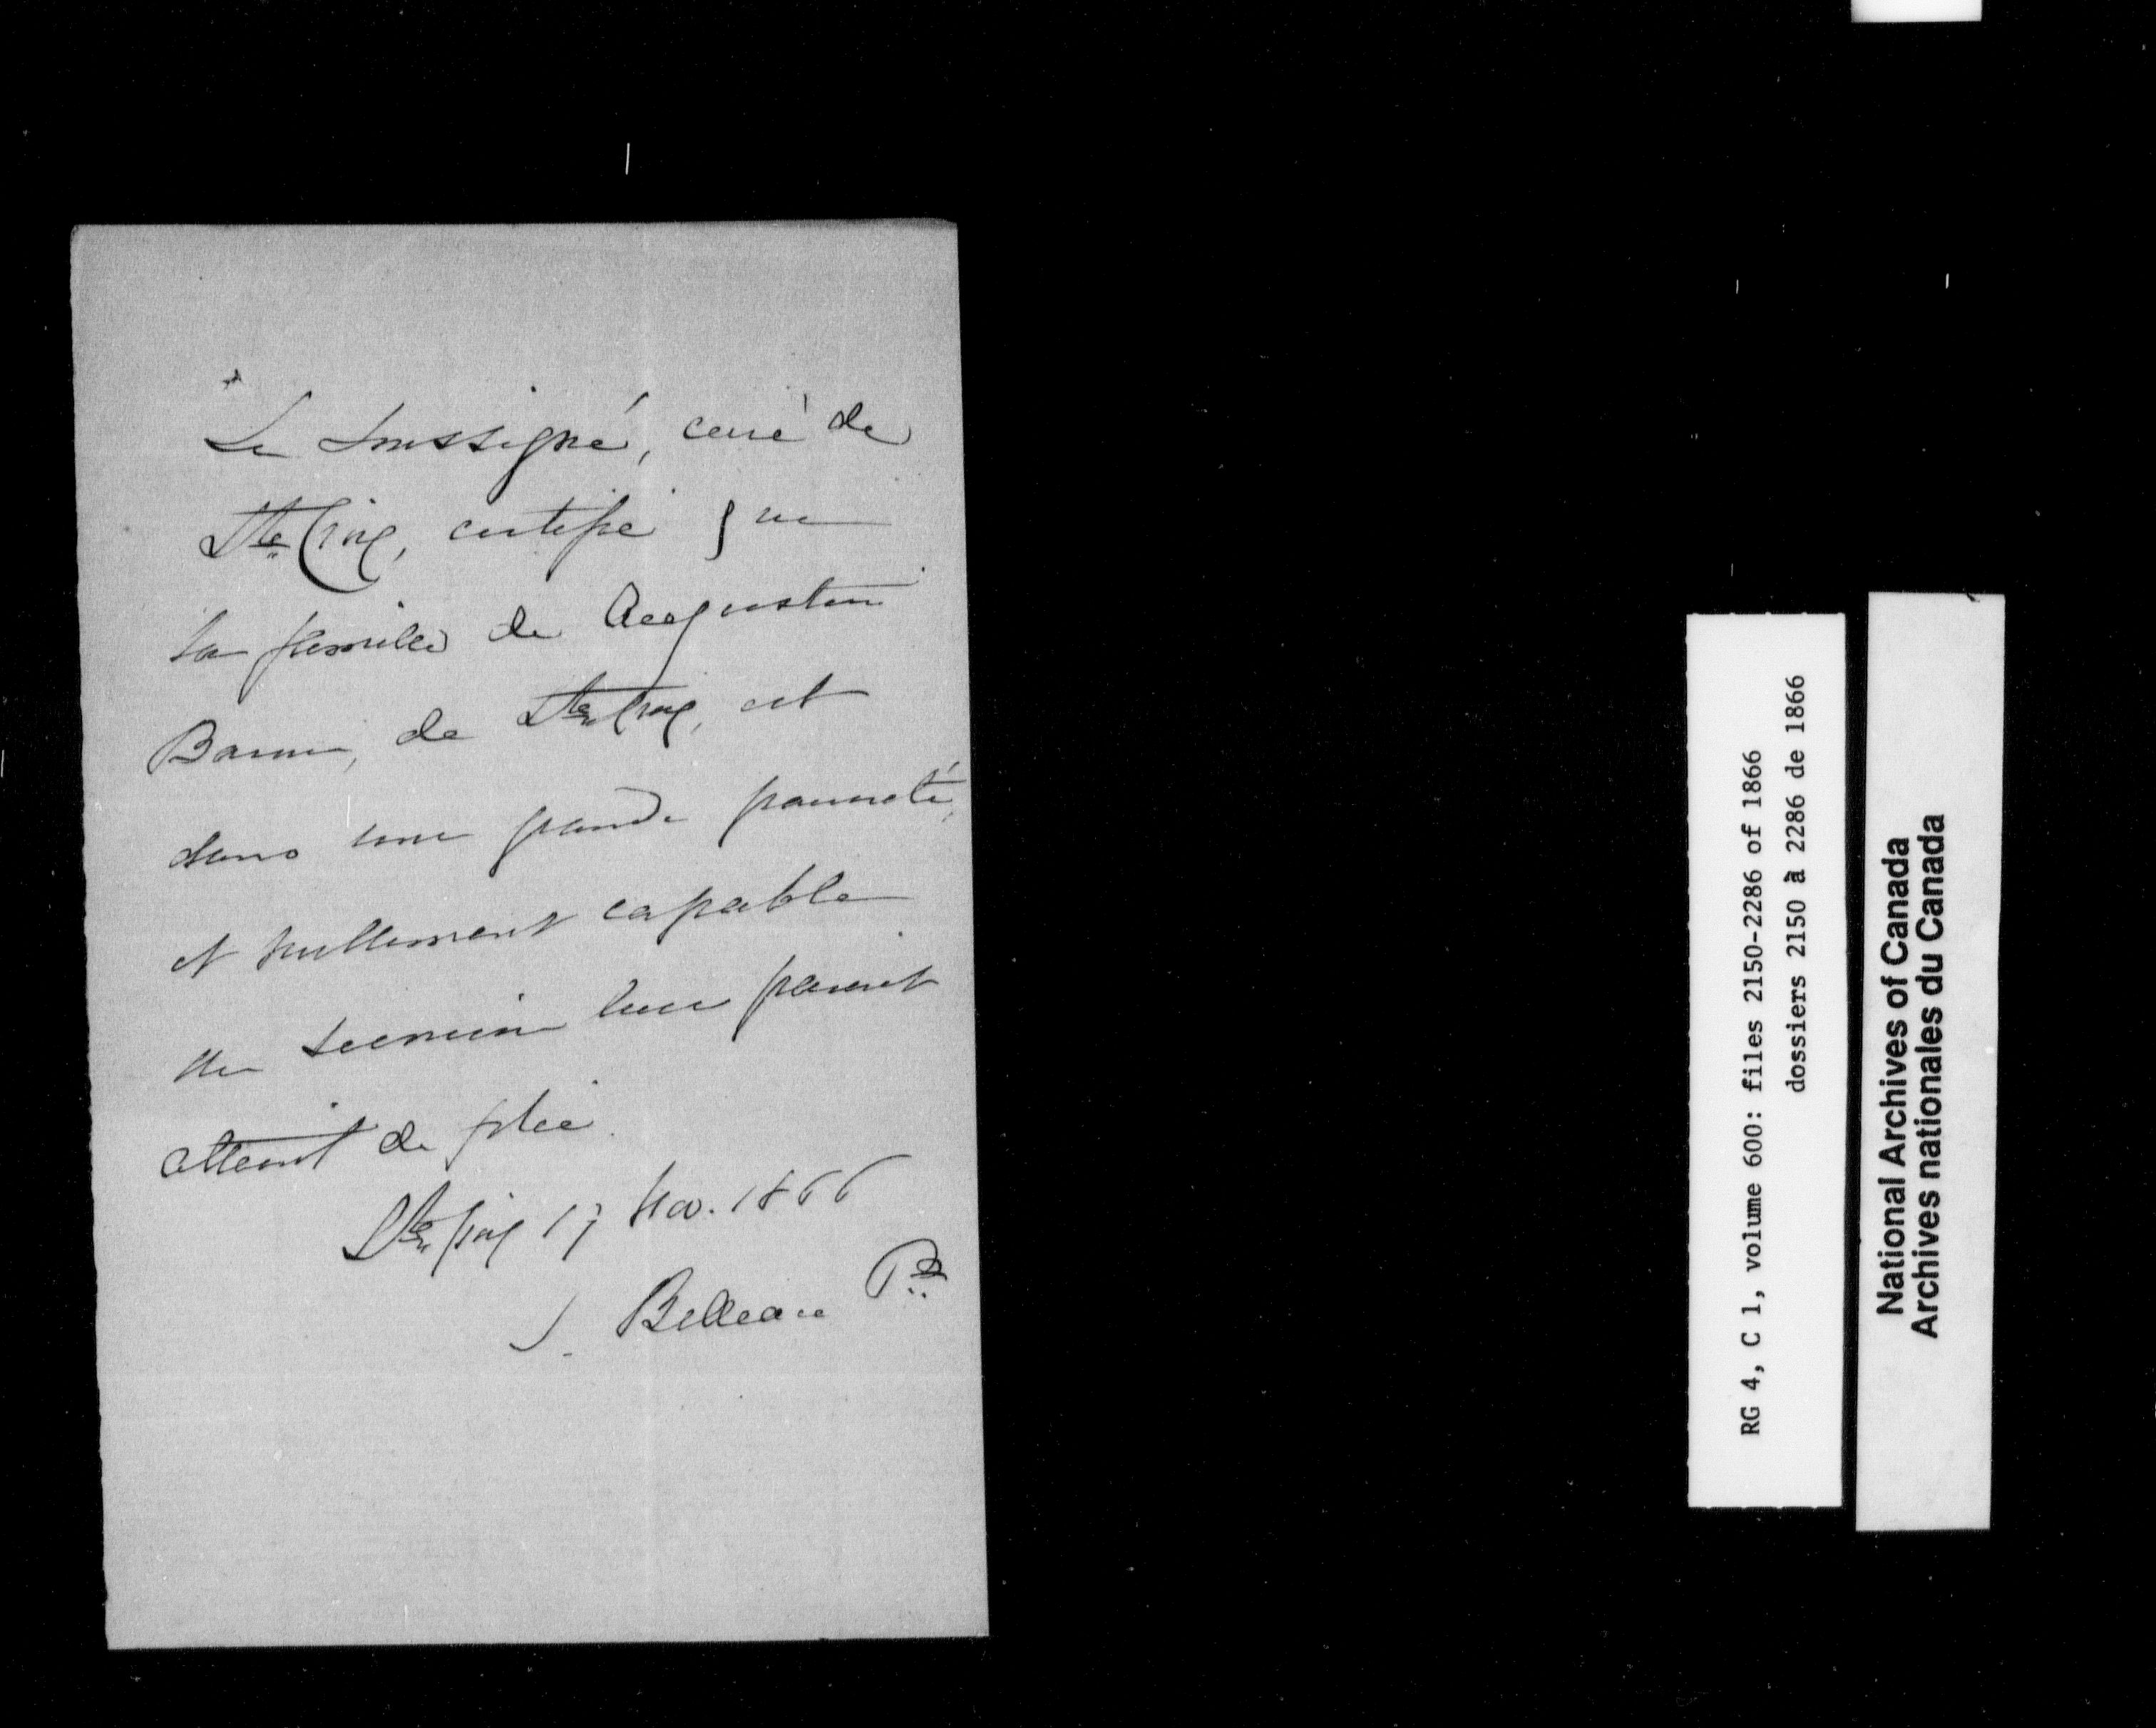 Le soussigné, curé de
Ste Croix, certifie que
la famille de Augustin
Baron, de Ste Croix, est
dans une grande pauvreté,
et nullement capable
de secourir leur parent
atteint de folie.
Ste Croix 17 Nov. 1866
J. Belleau Ptre
RG 4, C 1, volume 600: files 2150-2286 of 1866
dossiers 2150 à 2286 de 1866
National Archives of Canada
Archives nationales du Canada